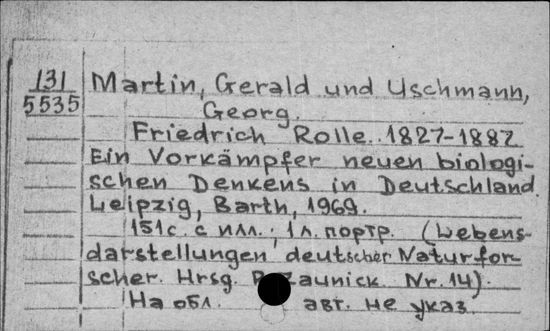 131
5535
Martin, Gerald und Uschmann,
Georg.
Friedrich Rolle. 1827-1887.
Ein Vorkämpfer neuen biologi-
schen Denkens in Deutschland.
Leipzig, Barth, 1969.
151 с. с илл.; 1 л. портр. (Lebens-
darstellungen deutscher Naturfor-
scher. Hrsg. Zaunick. Nr. 14).
На обл. авт. не указ.